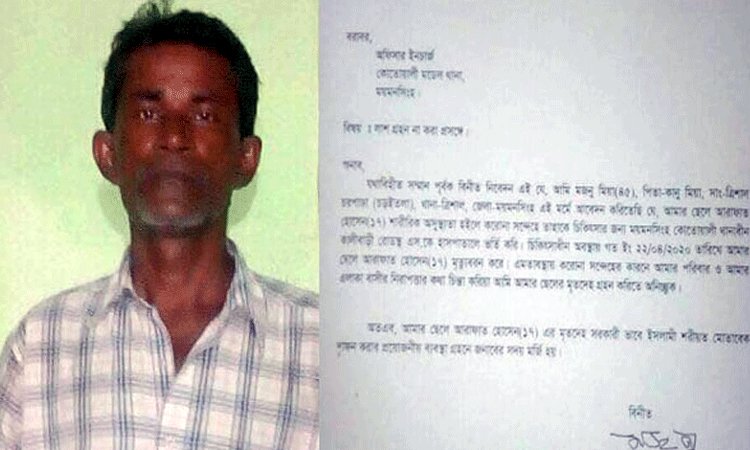 বরাবর,
অফিসার ইনচার্জ
কোতোয়ালী মডেল থানা,
ময়মনসিংহ।
বিষয় : লাশ গ্রহন না করা প্রসঙ্গে।
জনাব,
যথাবিহীত সম্মান পূর্বক বিনীত নিবেদন এই যে, আমি মজনু মিয়া(৪৫), পিতা-কালু মিয়া, সাং-ত্রিশাল
চরপাড়া (চড়ইতলা), থানা-ত্রিশাল, জেলা-ময়মনসিংহ এই মর্মে আবেদন করিতেছি যে, আমার ছেলে আরাফাত
হোসেন(১৭) শারীরিক অসুস্থতা হইলে করোনা সন্দেহে তাহাকে চিকিৎসার জন্য ময়মনসিংহ কোতোয়ালী থানাধীন
কালীবাড়ী রোডস্থ এস,কে হাসপাতালে ভর্তি করি। চিকিৎসাধীন অবস্থায় গত ইং ২২/০৪/২০২০ তারিখে আমার
ছেলে আরাফাত হোসেন(১৭) মৃত্যুবরন করে। এমতাবস্থায় করোনা সন্দেহের কারনে আমার পরিবার ও আমার
এলাকা বাসীর নিরাপত্তার কথা চিন্তা করিয়া আমি আমার ছেলের মৃতদেহ গ্রহন করিতে অনিচ্ছুক।
অতএব, আমার ছেলে আরাফাত হোসেন(১৭) এর মৃতদেহ সরকারী ভাবে ইসলামী শরীয়ত মোতাবেক
দাফন করার প্রয়োজনীয় ব্যবস্থা গ্রহনে জনাবের সদয় মর্জি হয়।
বিনীত